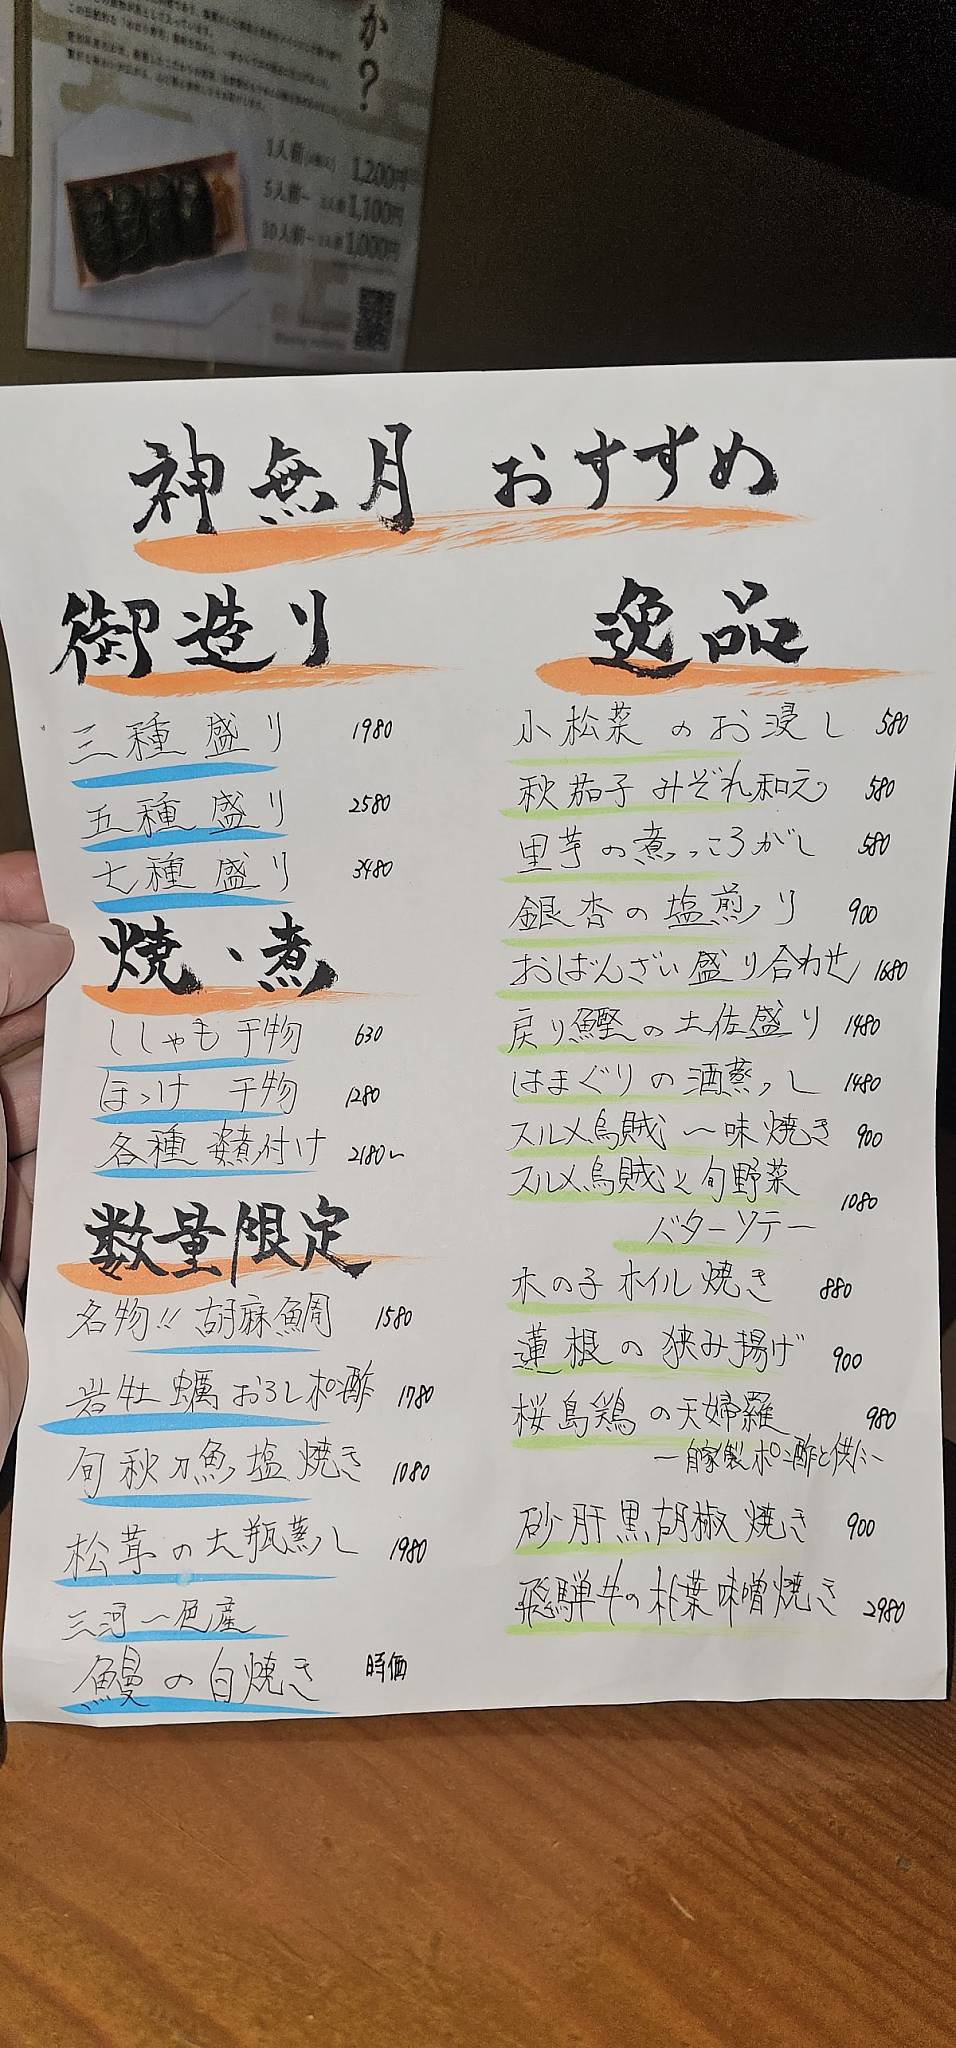 か?
1人前 1,200円
5人前〜 1,100円
10人前〜 1,000円
神無月 おすすめ
御造り
三種盛り 1980
五種盛り 2580
七種盛り 3480
焼・煮
ししゃも干物 630
ほっけ 干物 1280
各種 煮付け 2180〜
数量限定
名物!! 胡麻鯛 1580
岩牡蠣おろしポン酢 1780
旬秋刀魚塩焼き 1080
松茸の土瓶蒸し 1980
三河一色産
鰻の白焼き 時価
逸品
小松菜のお浸し 580
秋茄子みぞれ和え 580
里芋の煮っころがし 580
銀杏の塩煎り 900
おばんざい盛り合わせ 1680
戻り鰹の土佐盛り 1480
はまぐりの酒蒸し 1480
スルメ烏賊 一味焼き 900
スルメ烏賊と旬野菜
バターソテー 1080
木の子ホイル焼き 880
蓮根の挟み揚げ 900
桜島鶏の天婦羅 980
〜自家製ポン酢と供に〜
砂肝黒胡椒焼き 900
飛騨牛の朴葉味噌焼き 2980